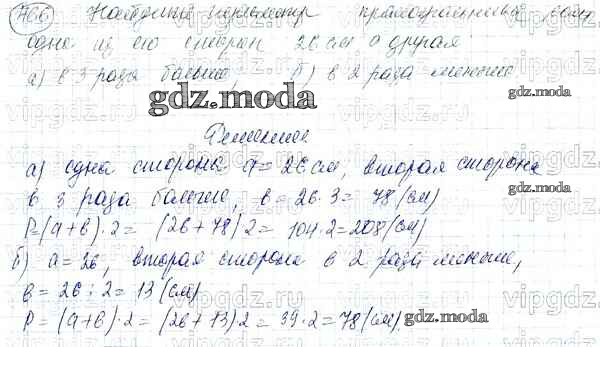 766 Найдите периметр прямоугольника, если
одна из его сторон 26 см, а другая
а) в 3 раза больше б) в 2 раза меньше
gdz.moda
gdz.moda
Решение
а) одна сторона a = 26 см, вторая сторона
в 3 раза больше, в = 26·3 = 78 (см)
gdz.moda
P=(a+в)·2 = (26+78)2 = 104·2=208(см)
б) a = 26, вторая сторона в 2 раза меньше,
в = 26:2 = 13 (см)
P = (a+в)·2 = (26+13)2 = 39·2=78(см)
gdz.moda
vipgdz.ru